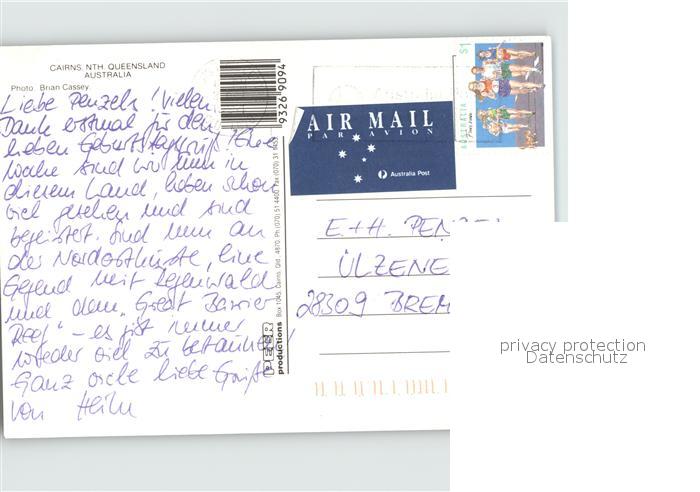 CAIRNS. NTH. QUEENSLAND
AUSTRALIA
Photo. Brian Cassey.
Liebe Penzels! Vielen
Dank erstmal für den
lieben Geburtstagsgruß! Eine
Woche sind wir nun in
diesem Land, haben schon
viel gesehen und sind
begeistert. Sind nun an
der Nordostküste, eine
Gegend mit Regenwald
und dem „Great Barrier
Reef" - es gibt immer
wieder viel zu bestaunen!
Ganz viele liebe Grüße
von
9326 9094
PEER
productions
Box 1045, Cairns. Qld. 4870. Ph (070) 51 4400. Fax (070) 31
AIR MAIL
PAR AVION
Australia Post
$1
AUSTRALIA
E + H. PEN
ÜLZENE
28309 BREM
privacy protection
Datenschutz